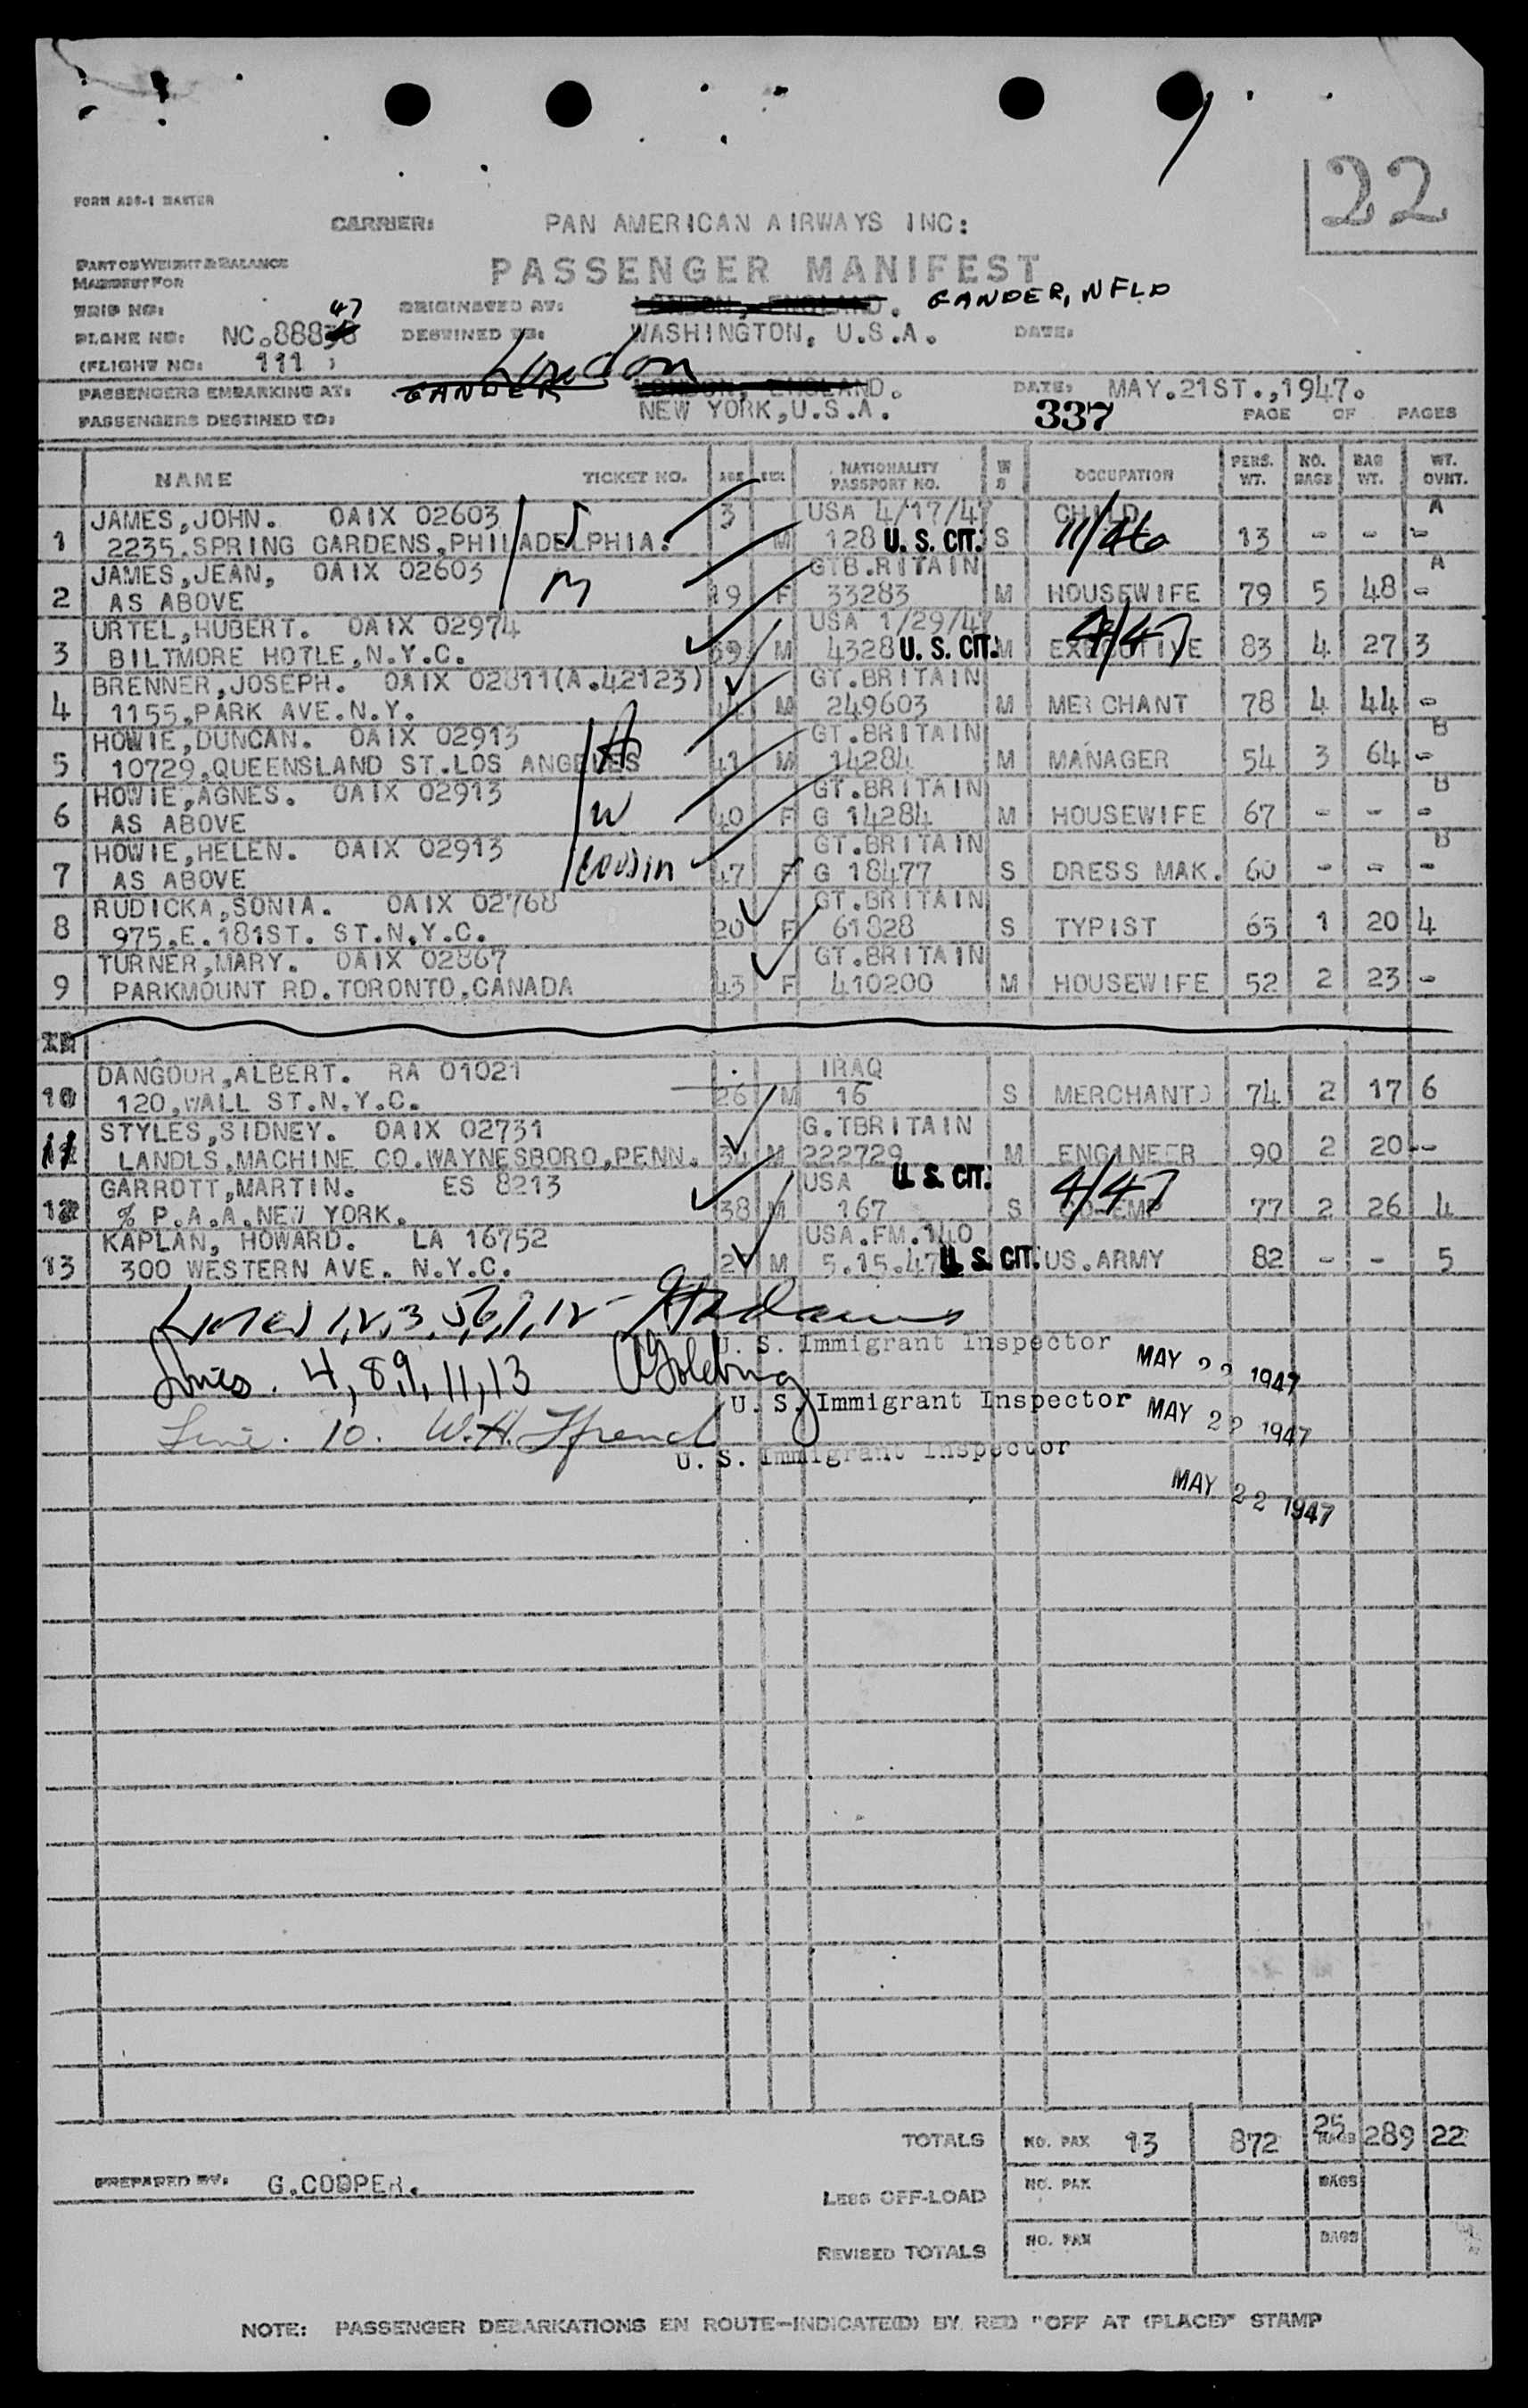 22
FORM ADS-1 MASTER
CARRIER: PAN AMERICAN AIRWAYS INC:
PART OF WEIGHT & BALANCE
MANIFEST FOR
PASSENGER MANIFEST
TRIP NO: ORIGINATED AT: LONDON, ENGLAND. GANDER, NFLD
47
PLANE NO: NC.88838 DESTINED TO: WASHINGTON, U.S.A. DATE:
(FLIGHT NO: 111 ) London
PASSENGERS EMBARKING AT: GANDER LONDON, ENGLAND. DATE: MAY.21ST.,1947.
PASSENGERS DESTINED TO: NEW YORK,U.S.A. 337 PAGE OF PAGES
NAME TICKET NO. AGE SEX NATIONALITY PASSPORT NO. W S OCCUPATION PERS. WT. NO. BAGS BAG WT. WT. OVNT.
JAMES,JOHN. OAIX 02603 3 USA 4/17/47 CHILD A
1 2235.SPRING GARDENS,PHILADELPHIA. M 128 U. S. CIT. S 11/46 13 - - -
JAMES,JEAN, OAIX 02603 M GTB.RITAIN A
2 AS ABOVE 19 F 33283 M HOUSEWIFE 79 5 48 -
URTEL,HUBERT. OAIX 02974 USA 1/29/47 4/47
3 BILTMORE HOTLE,N.Y.C. 39 M 4328 U. S. CIT. M EXECUTIVE 83 4 27 3
BRENNER,JOSEPH. OAIX 02811(A.42123) GT.BRITAIN
4 1155.PARK AVE.N.Y. M 249603 M MERCHANT 78 4 44 -
HOWIE,DUNCAN. OAIX 02913 H GT.BRITAIN B
5 10729.QUEENSLAND ST.LOS ANGELES 41 M 14284 M MANAGER 54 3 64 -
HOWIE,AGNES. OAIX 02913 W GT.BRITAIN B
6 AS ABOVE 40 F G 14284 M HOUSEWIFE 67 - - -
HOWIE,HELEN. OAIX 02913 Cousin GT.BRITAIN B
7 AS ABOVE 47 F G 18477 S DRESS MAK. 60 - - -
RUDICKA,SONIA. OAIX 02768 GT.BRITAIN
8 975.E.181ST. ST.N.Y.C. 20 F 61828 S TYPIST 65 1 20 4
TURNER,MARY. OAIX 02867 GT.BRITAIN
9 PARKMOUNT RD.TORONTO,CANADA 43 F 410200 M HOUSEWIFE 52 2 23 -
DANGOUR,ALBERT. RA 01021 IRAQ
10 120,WALL ST.N.Y.C. 26 M 16 S MERCHANT 74 2 17 6
STYLES,SIDNEY. OAIX 02731 G.TBRITAIN
11 LANDLS,MACHINE CO.WAYNESBORO,PENN. 34 M 222729 M ENGINEER 90 2 20 --
GARROTT,MARTIN. ES 8213 USA U. S. CIT. 4/47
12 % P.A.A.NEW YORK. 38 M 167 S CO-EMP 77 2 26 4
KAPLAN, HOWARD. LA 16752 USA.FM.140
13 300 WESTERN AVE. N.Y.C. 27 M 5.15.47 U. S. CIT. US.ARMY 82 - - 5
Lines 1,2,3,5,6,7,12
U. S. Immigrant Inspector MAY 22 1947
Lines. 4,8,9,11,13
U. S. Immigrant Inspector MAY 22 1947
Line. 10. W.H. French
U. S. Immigrant Inspector
MAY 22 1947
TOTALS NO. PAX 13 872 25 BAGS 289 22
PREPARED BY: G.COOPER.
LESS OFF-LOAD NO. PAX BAGS
REVISED TOTALS NO. PAX BAGS
NOTE: PASSENGER DEBARKATIONS EN ROUTE-INDICATE(D) BY RED "OFF AT (PLACE)" STAMP